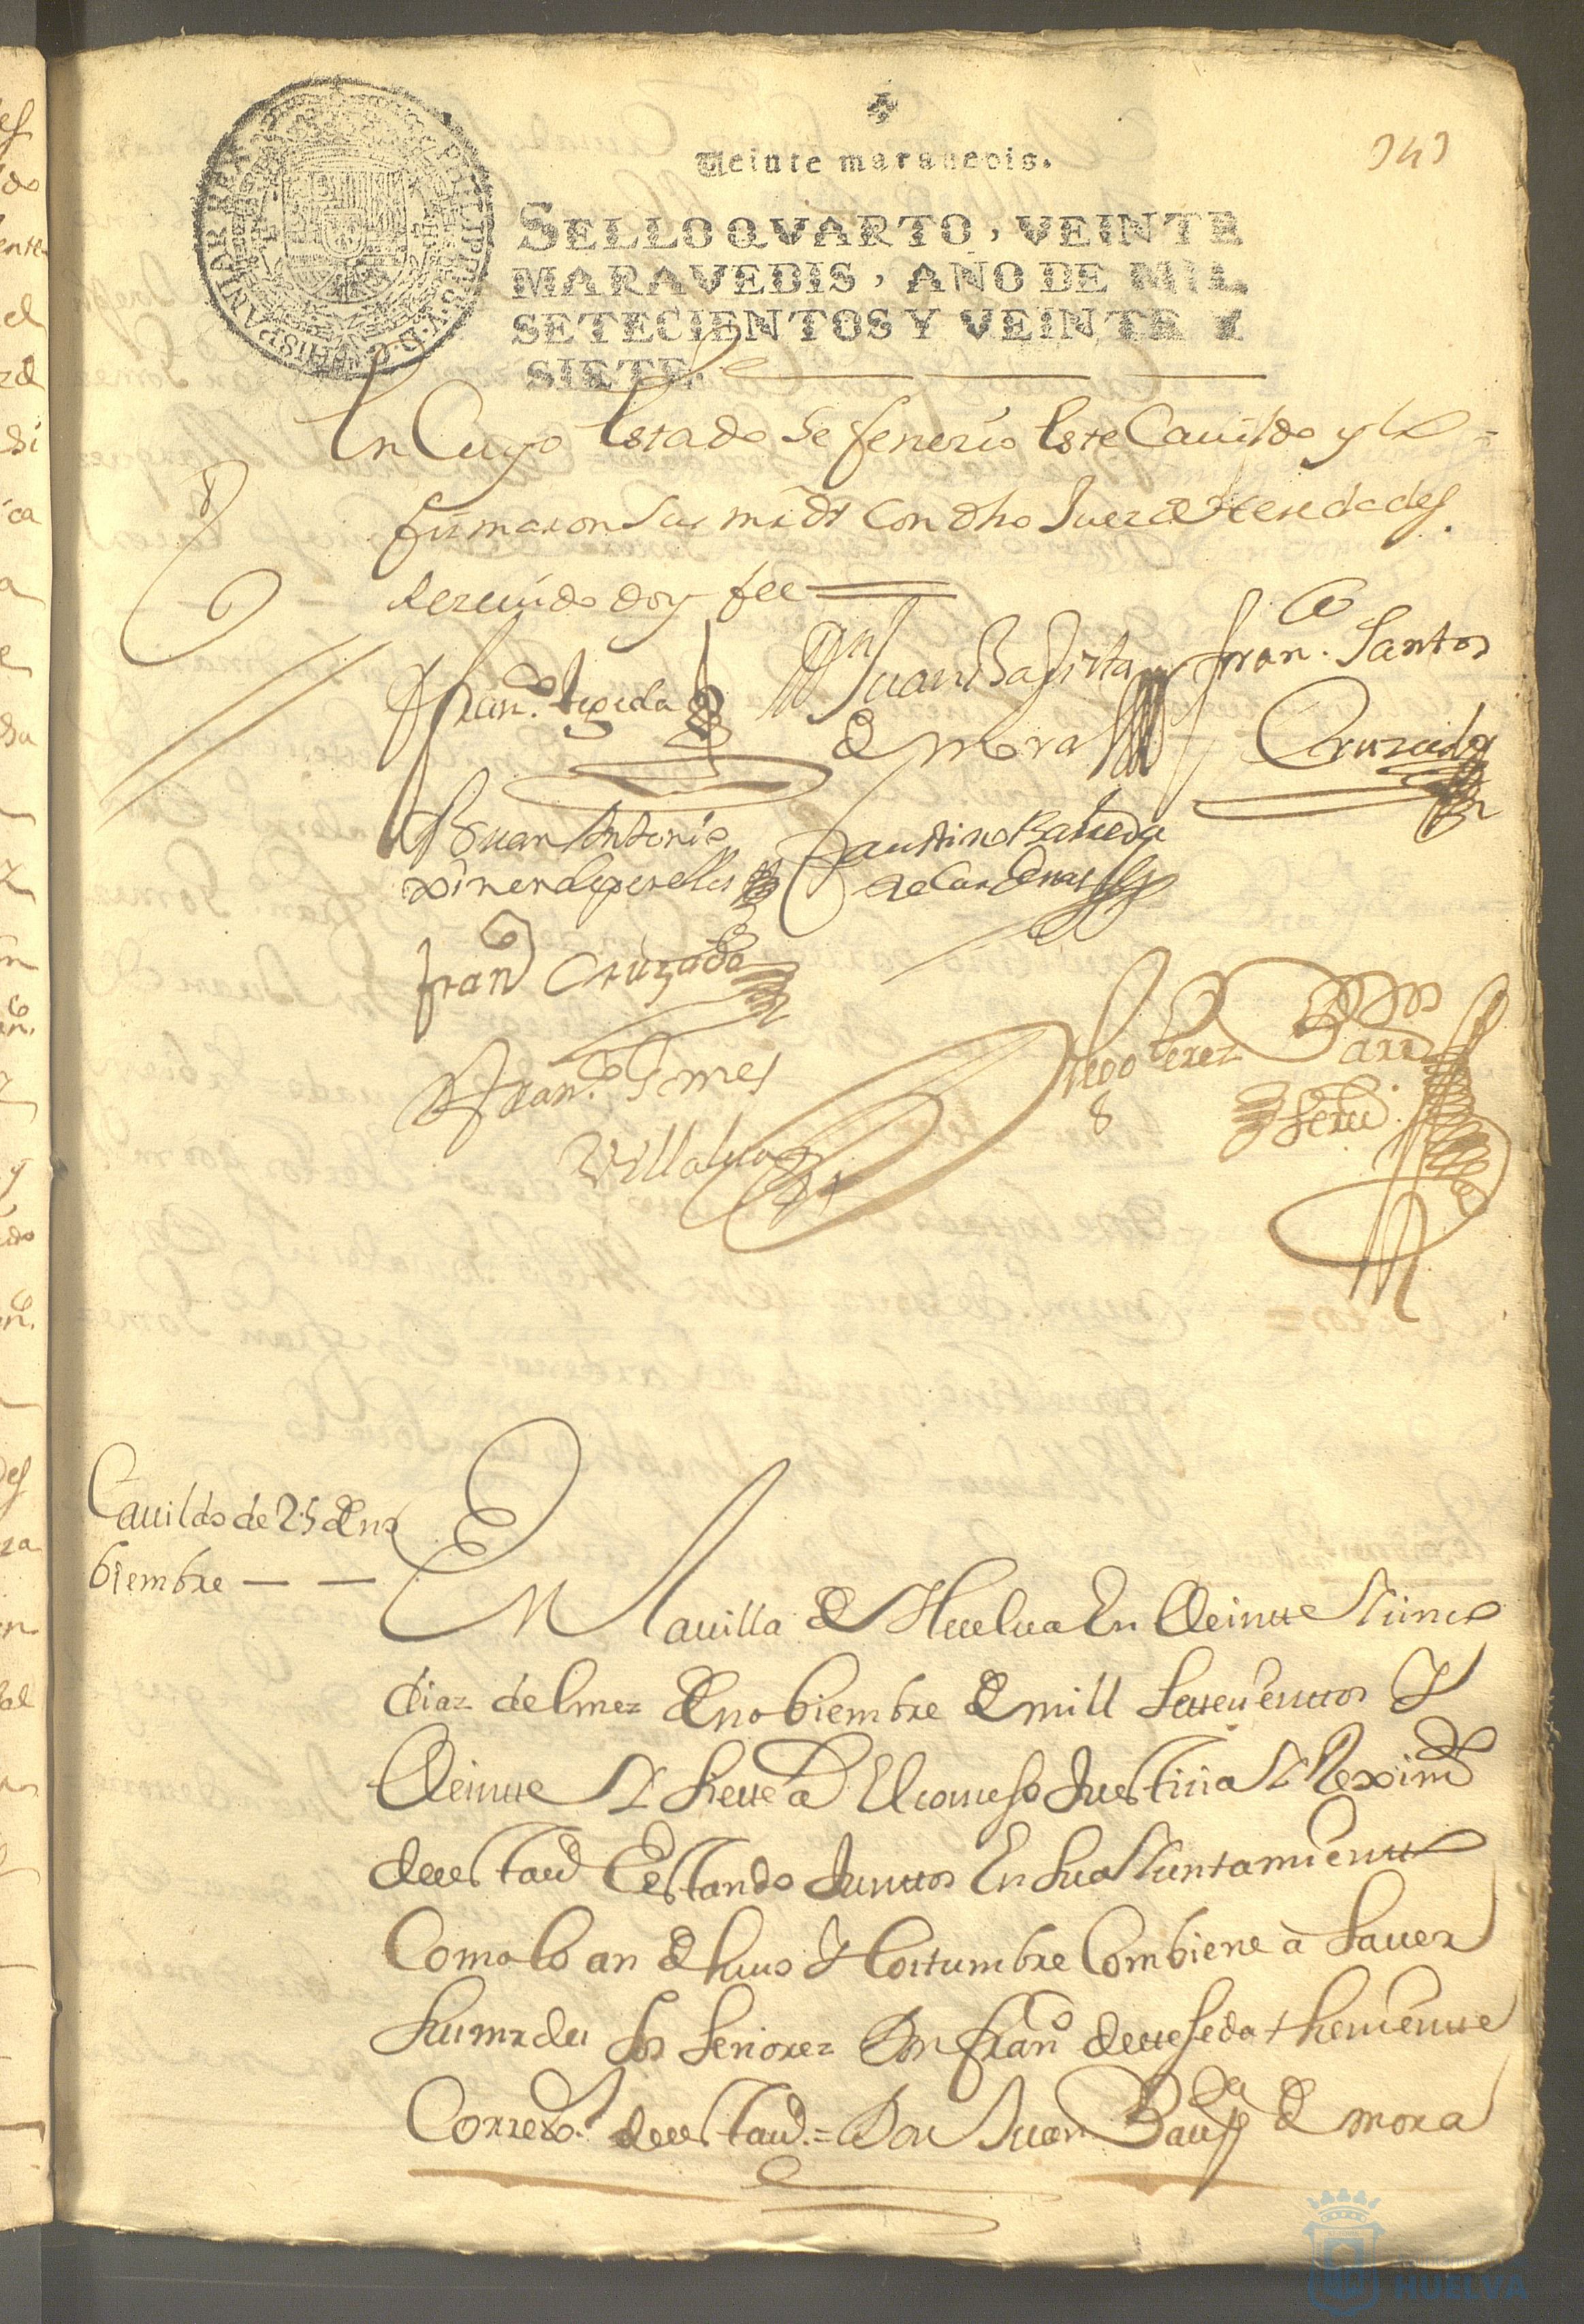 Veinte maravedis.
343
SELLO QVARTO, VEINTE
MARAVEDIS, AÑO DE MIL
SETECIENTOS Y VEINTE Y
SIETE.
PHILIPPUS V D G HISPANIAR REX
En Cuyo Estado Se feneзio Este Cauildo y lo
firmaron Sus mrds Con dho Juez de Heredades
de que doy fee
Franco. tegeda
Dn Juan Baptista
de Mora
Fran.co Santos
Cruzado
Juan Antonio
ximenez
Faustino Barreda
de Cardenas
franco Cruzado
Franco. Gomes
Villalua
Diego Perez
Cauildo de 25 de no
biembre
En la uilla de Huelua En Veintte Y sinco
dias del mez de nobiembre de mill settecienttos Y
Veintte Y siette a El consejo Justicia Y Reximto
de esta uа Estando Junttos En su aYuntamientto
Como lo an de huso Y Costumbre Combiene à Sauer
Sus mrds los Señorez Don franco de tteseda theniente
Corregor. de esta ua. = Don Juan Bauptta de mora
HUELVA